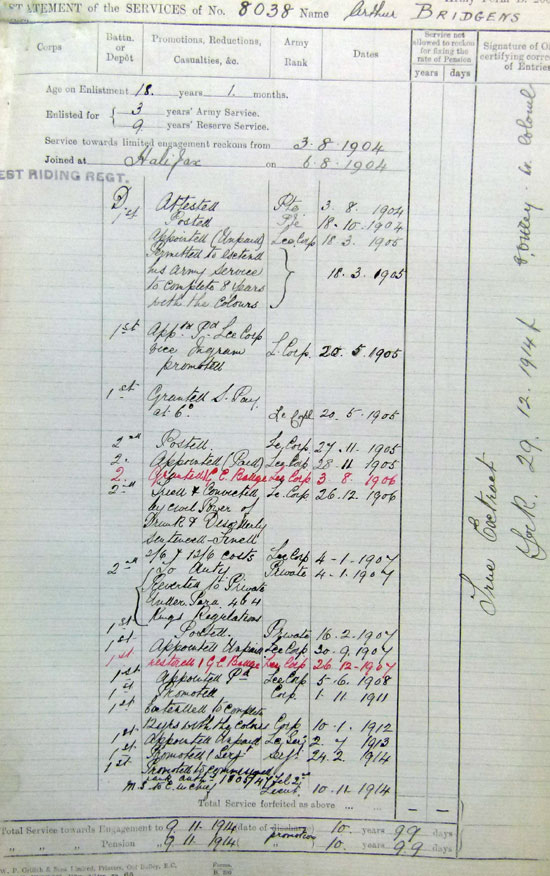 STATEMENT of the SERVICES of No. 8038 Name Arthur BRIDGENS
Corps
Battn. or Depôt
Promotions, Reductions, Casualties, &c.
Army Rank
Dates
Service not allowed to reckon for fixing the rate of Pension
years days
Signature of
certifying correc
of Entries
Age on Enlistment 18 years 1 months.
Enlisted for { 3 years' Army Service.
9 years' Reserve Service.
Service towards limited engagement reckons from 3.8.1904
Joined at Halifax on 6.8.1904
EST RIDING REGT.
D. Attested Pte 3. 8. 1904
1st Posted Pte 18.10.1904
Appointed (Unpaid) Lce Corp 18.3.1905
Permitted to extend
his Army Service
to complete 8 years
with the colours 18.3.1905
1st Appd Pd Lce Corp
vice Ingram
promoted L. Corp. 20.5.1905
1st Granted S. Pay
at 6d Lce Corpl 20.5.1905
2nd Posted Lce Corp 27.11.1905
2. Appointed (Paid) Lce Corp 28.11.1905
2. Granted 1 G.C. Badge Lce Corp 3.8.1906
2nd Tried & Convicted Lce Corp 26.12.1906
by civil Power of
Drunk & Disorderly
Sentenced-Fined
2/6 & 13/6 costs Lce Corp 4-1-1907
2nd To duty Private 4-1-1907
Reverted to Private
Under Para. 464
Kings Regulations
1st Posted Private 16.2.1907
1st Appointed Unpaid Lce Corp 30-9-1907
1st restored 1 G.C. Badge Lce Corp 26-12-1907
1st Appointed Pd Lce Corp 5-6-1908
1st Promoted Corp 1.11.1911
1st Extended to complete
12 yrs with the colors Corp 10-1.1912
1st Appointed Unpaid Lce Serj 2.7.1913
1st Promoted Serj Serjt 24.2.1914
1st Promoted to Commissioned
rank 2nd
Lieut. 10.11.1914
Total Service forfeited as above ... ... – –
Total Service towards Engagement to 9.11.1914 (date of discharge promotion) 10 years 99 days
" " " Pension " 9.11.1914 ( " ) 10 years 99 days
True Extract
York. 29.12.1914
Lt. Colonel
W. P. Griffith & Sons Limited, Printers, Old Bailey, E.C.
Forms.